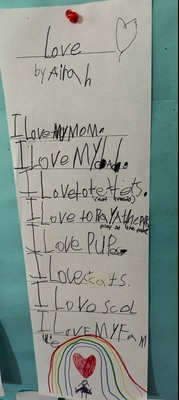 Love
by Airah
I Love My MOM.
I LOVE MY dad.
I Love to eat
(eat treats)
I Love to
play at the park
I Love PUPs.
I Love cats.
I Love
I LOVE MY FAM